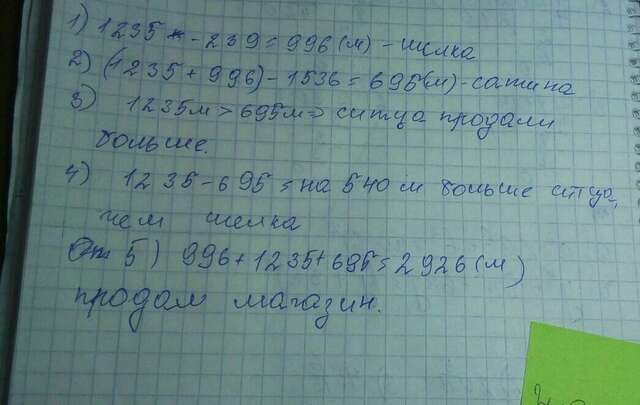 1) 1235 - 239 = 996 (м) - шелка
2) (1235 + 996) - 1536 = 695 (м) - сатина
3) 1235м > 695м => ситца продали
больше.
4) 1235 - 695 = на 540 м больше ситца,
чем шелка
От 5) 996 + 1235 + 695 = 2926 (м)
продам магазин.